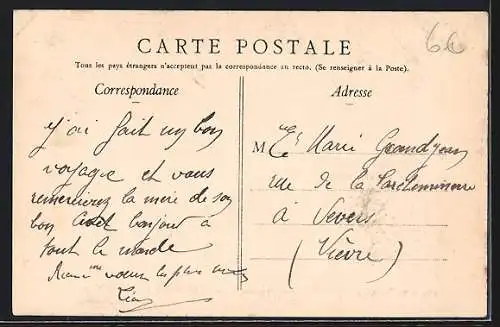 CARTE POSTALE
Tous les pays étrangers n'acceptent pas la correspondance au recto. (Se renseigner à la Poste).
Correspondance
Adresse
j'ai fait un bon
voyage et vous
remercierez la mère de son
bon bonjour à
tout le monde
vous les plus
Mlle Marie Grandjean
rue de la Parcheminerie
à Nevers
(Nièvre)